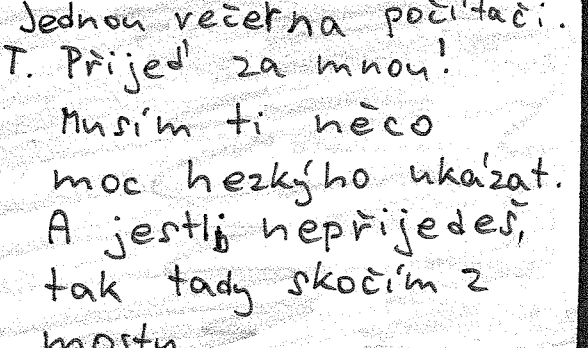 Jednou večer na počítači.
T. Přijeď za mnou!
Musím ti něco
moc hezkýho ukázat.
A jestli nepřijedeš,
tak tady skočím z
mostu